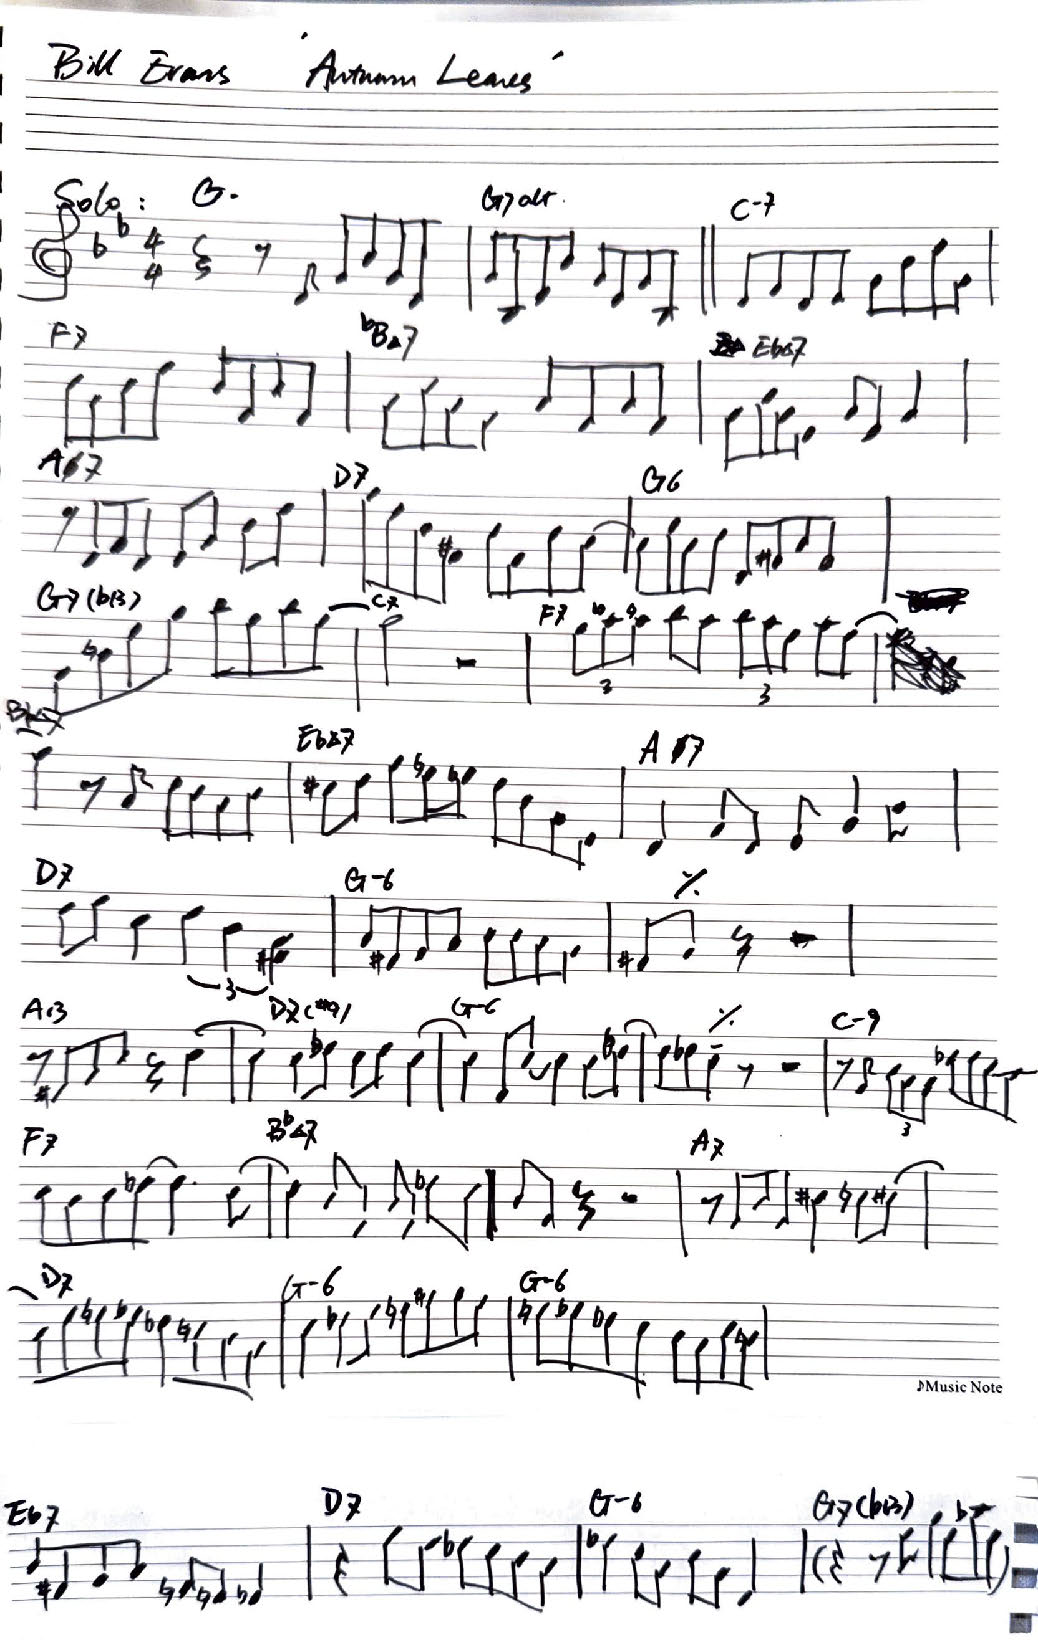 Bill Evans 'Autumn Leaves'
Solo: G- G7alt. C-7
4
4
F7 bB△7 Eb△7
A7 D7 G6
G7(b13) C7 F7
3 3
Bb△7
Eb△7 A7
D7 G-6 ٪
3
A13 D7(#9) G-6 ٪ C-9
3
F7 Bb△7 A7
D7 G-6 G-6
♪Music Note
Eb7 D7 G-6 G7(b13)